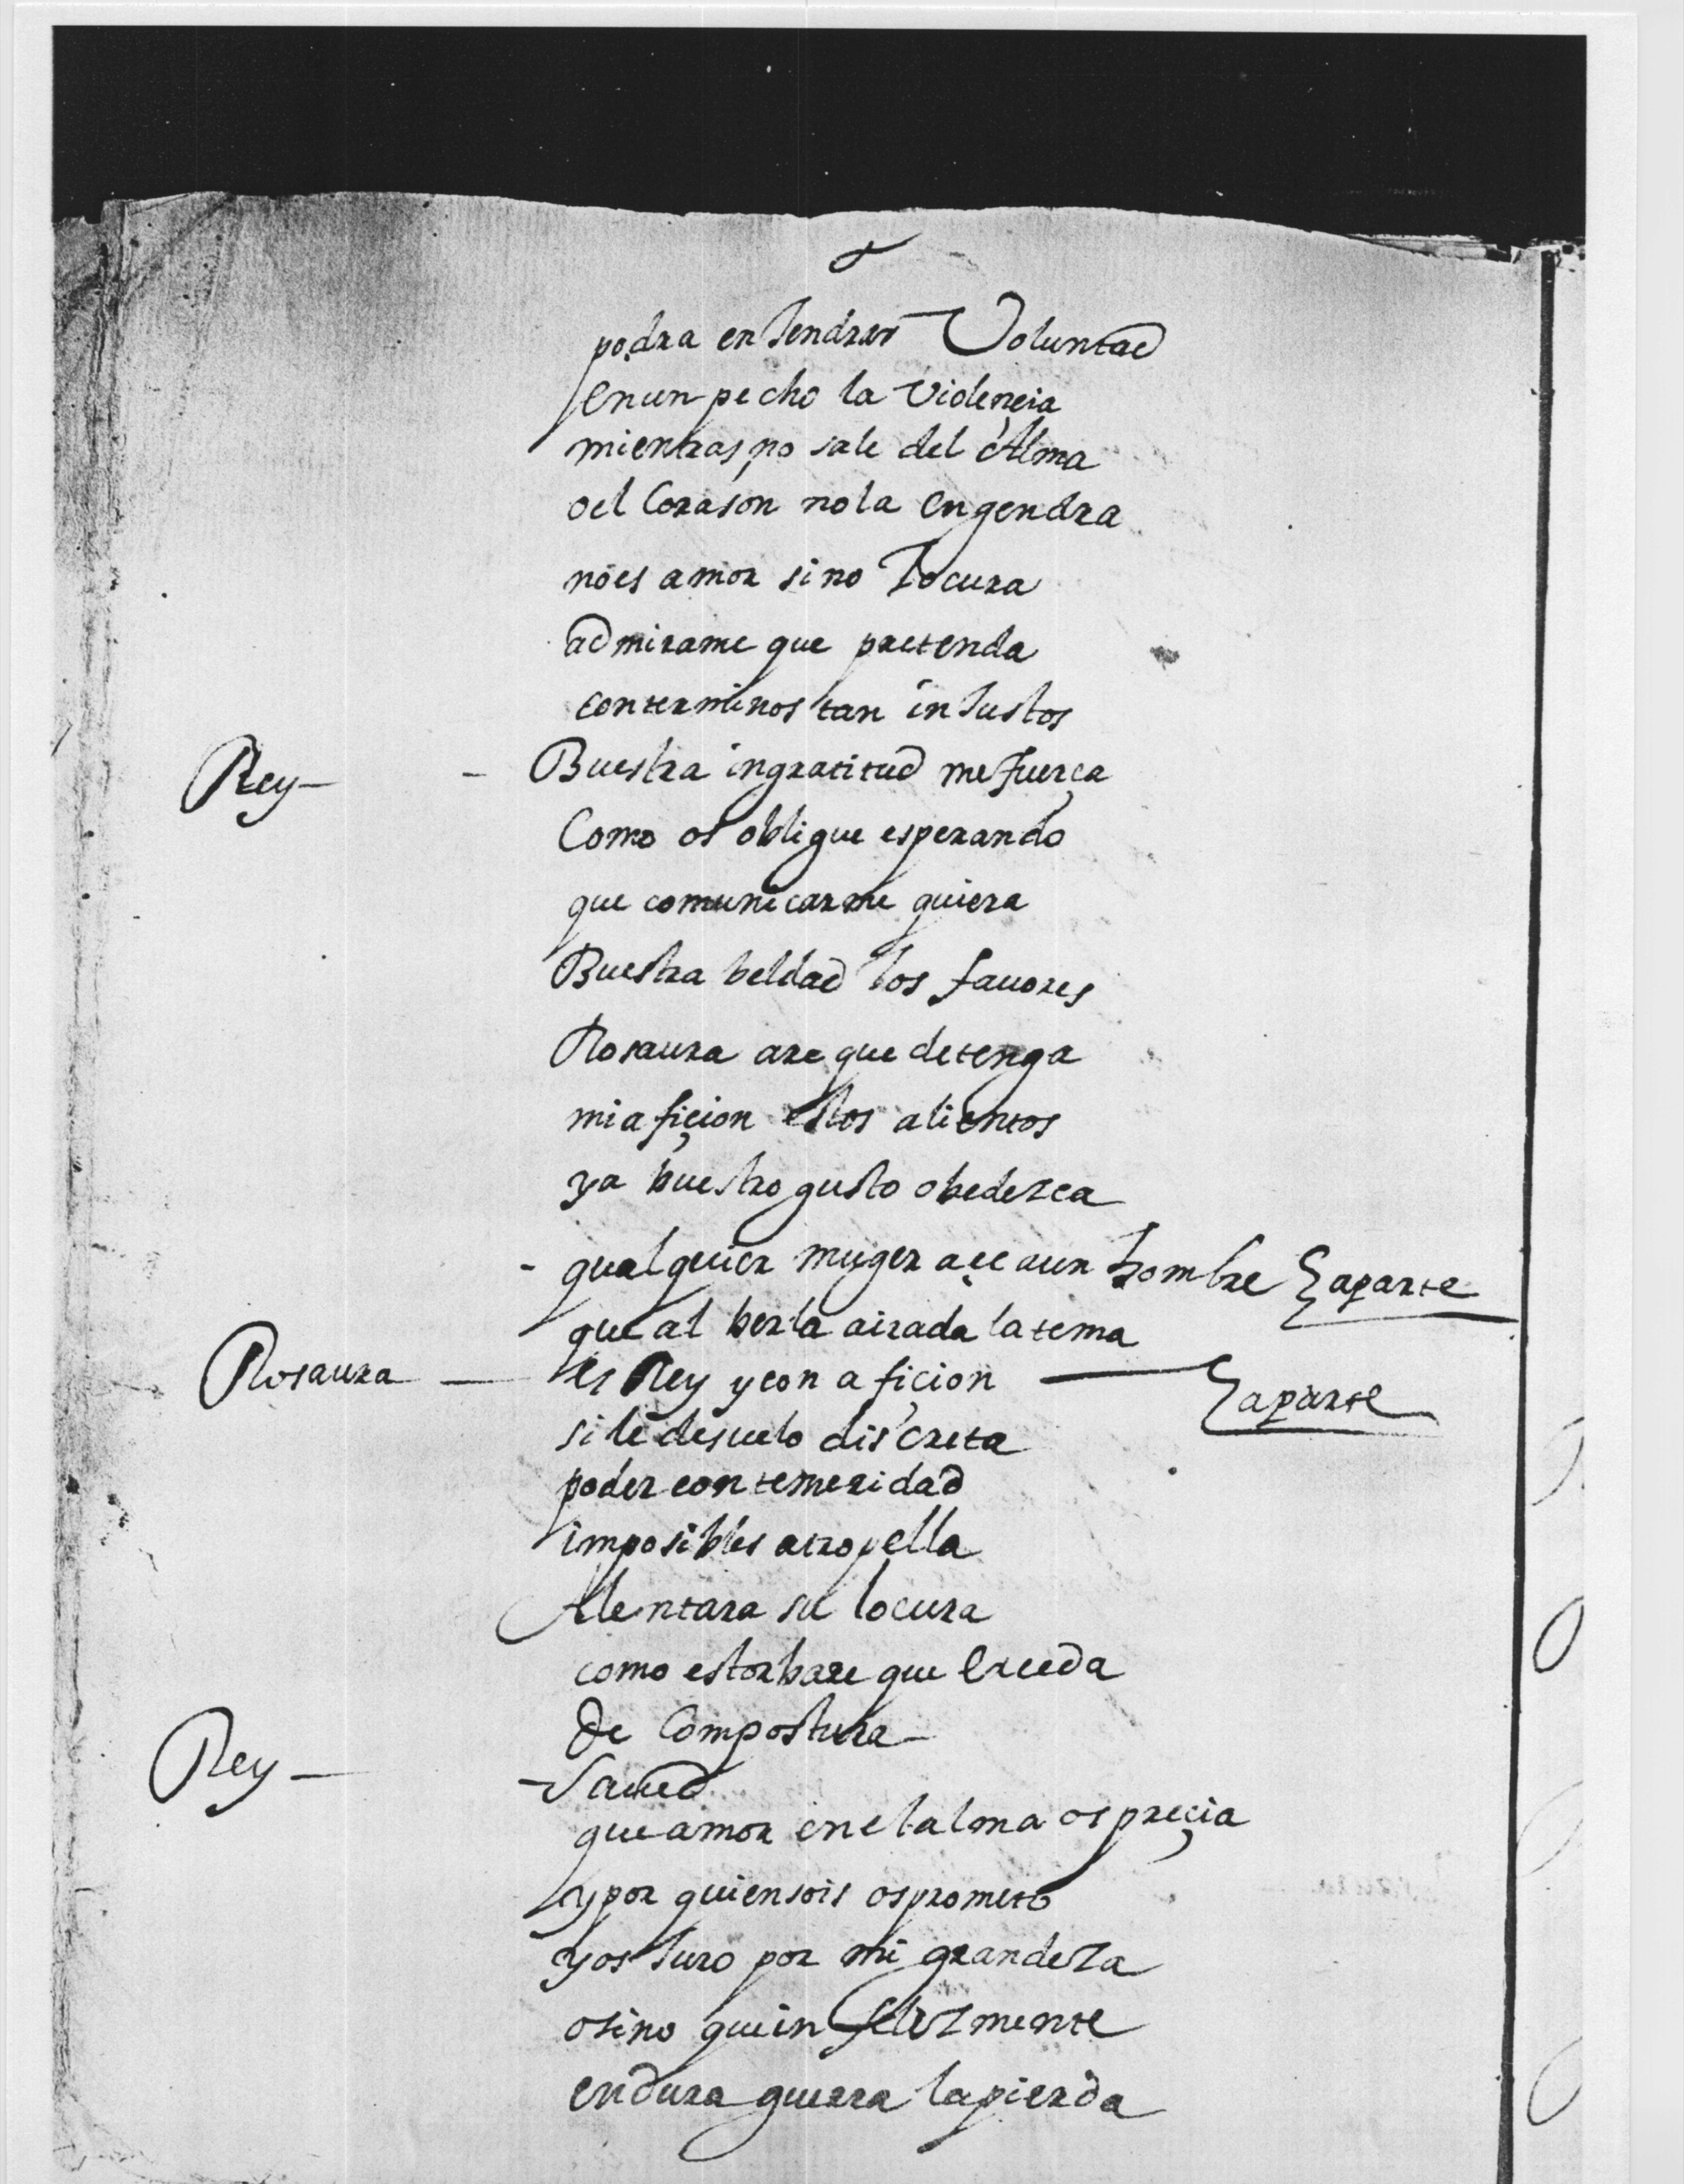 podra enJendrar Voluntad
en un pecho la Violençia
mientras no sale del Alma
o el Corason no la engendra
no es amor sino locura
admirame que pretenda
con terminos tan inJustos
Rey — - Buestra ingratitud me fuerça
Como os obligue esperando
que comunicarme quiera
Buestra beldad los fauores
Rosaura are que detenga
mi afiçion estos alientos
y a buestro gusto obedezca
- qualquier muger açe a un hombre {aparte
que al berla airada la tema
Rosaura — es Rey y con aficion — {aparte
si le desuelo discreta
poder con temeridad
imposibles atropella
Alentara su locura
como estorbare que exceda
de Compostura
Rey — - Saued
que amor en el alma os preçia
y por quien sois os prometo
y os Juro por mi grandeza
o si no que infelizmente
en dura guerra la pierda